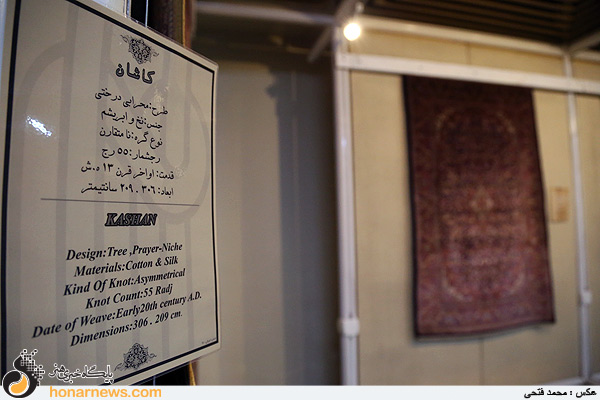 کاشان
طرح:محرابی درختی
جنس:نخ و ابریشم
نوع گره:نامتقارن
رجشمار:۵۵ رج
قدمت: اواخر قرن ۱۳ ه.ش
ابعاد: ۳۰۶ . ۲۰۹ سانتیمتر
KASHAN
Design:Tree ,Prayer-Niche
Materials:Cotton & Silk
Kind Of Knot:Asymmetrical
Knot Count:55 Radj
Date of Weave:Early20th century A.D.
Dimensions:306 . 209 cm.
پایگاه خبری هنر
honarnews.com
عکس : محمد فتحی